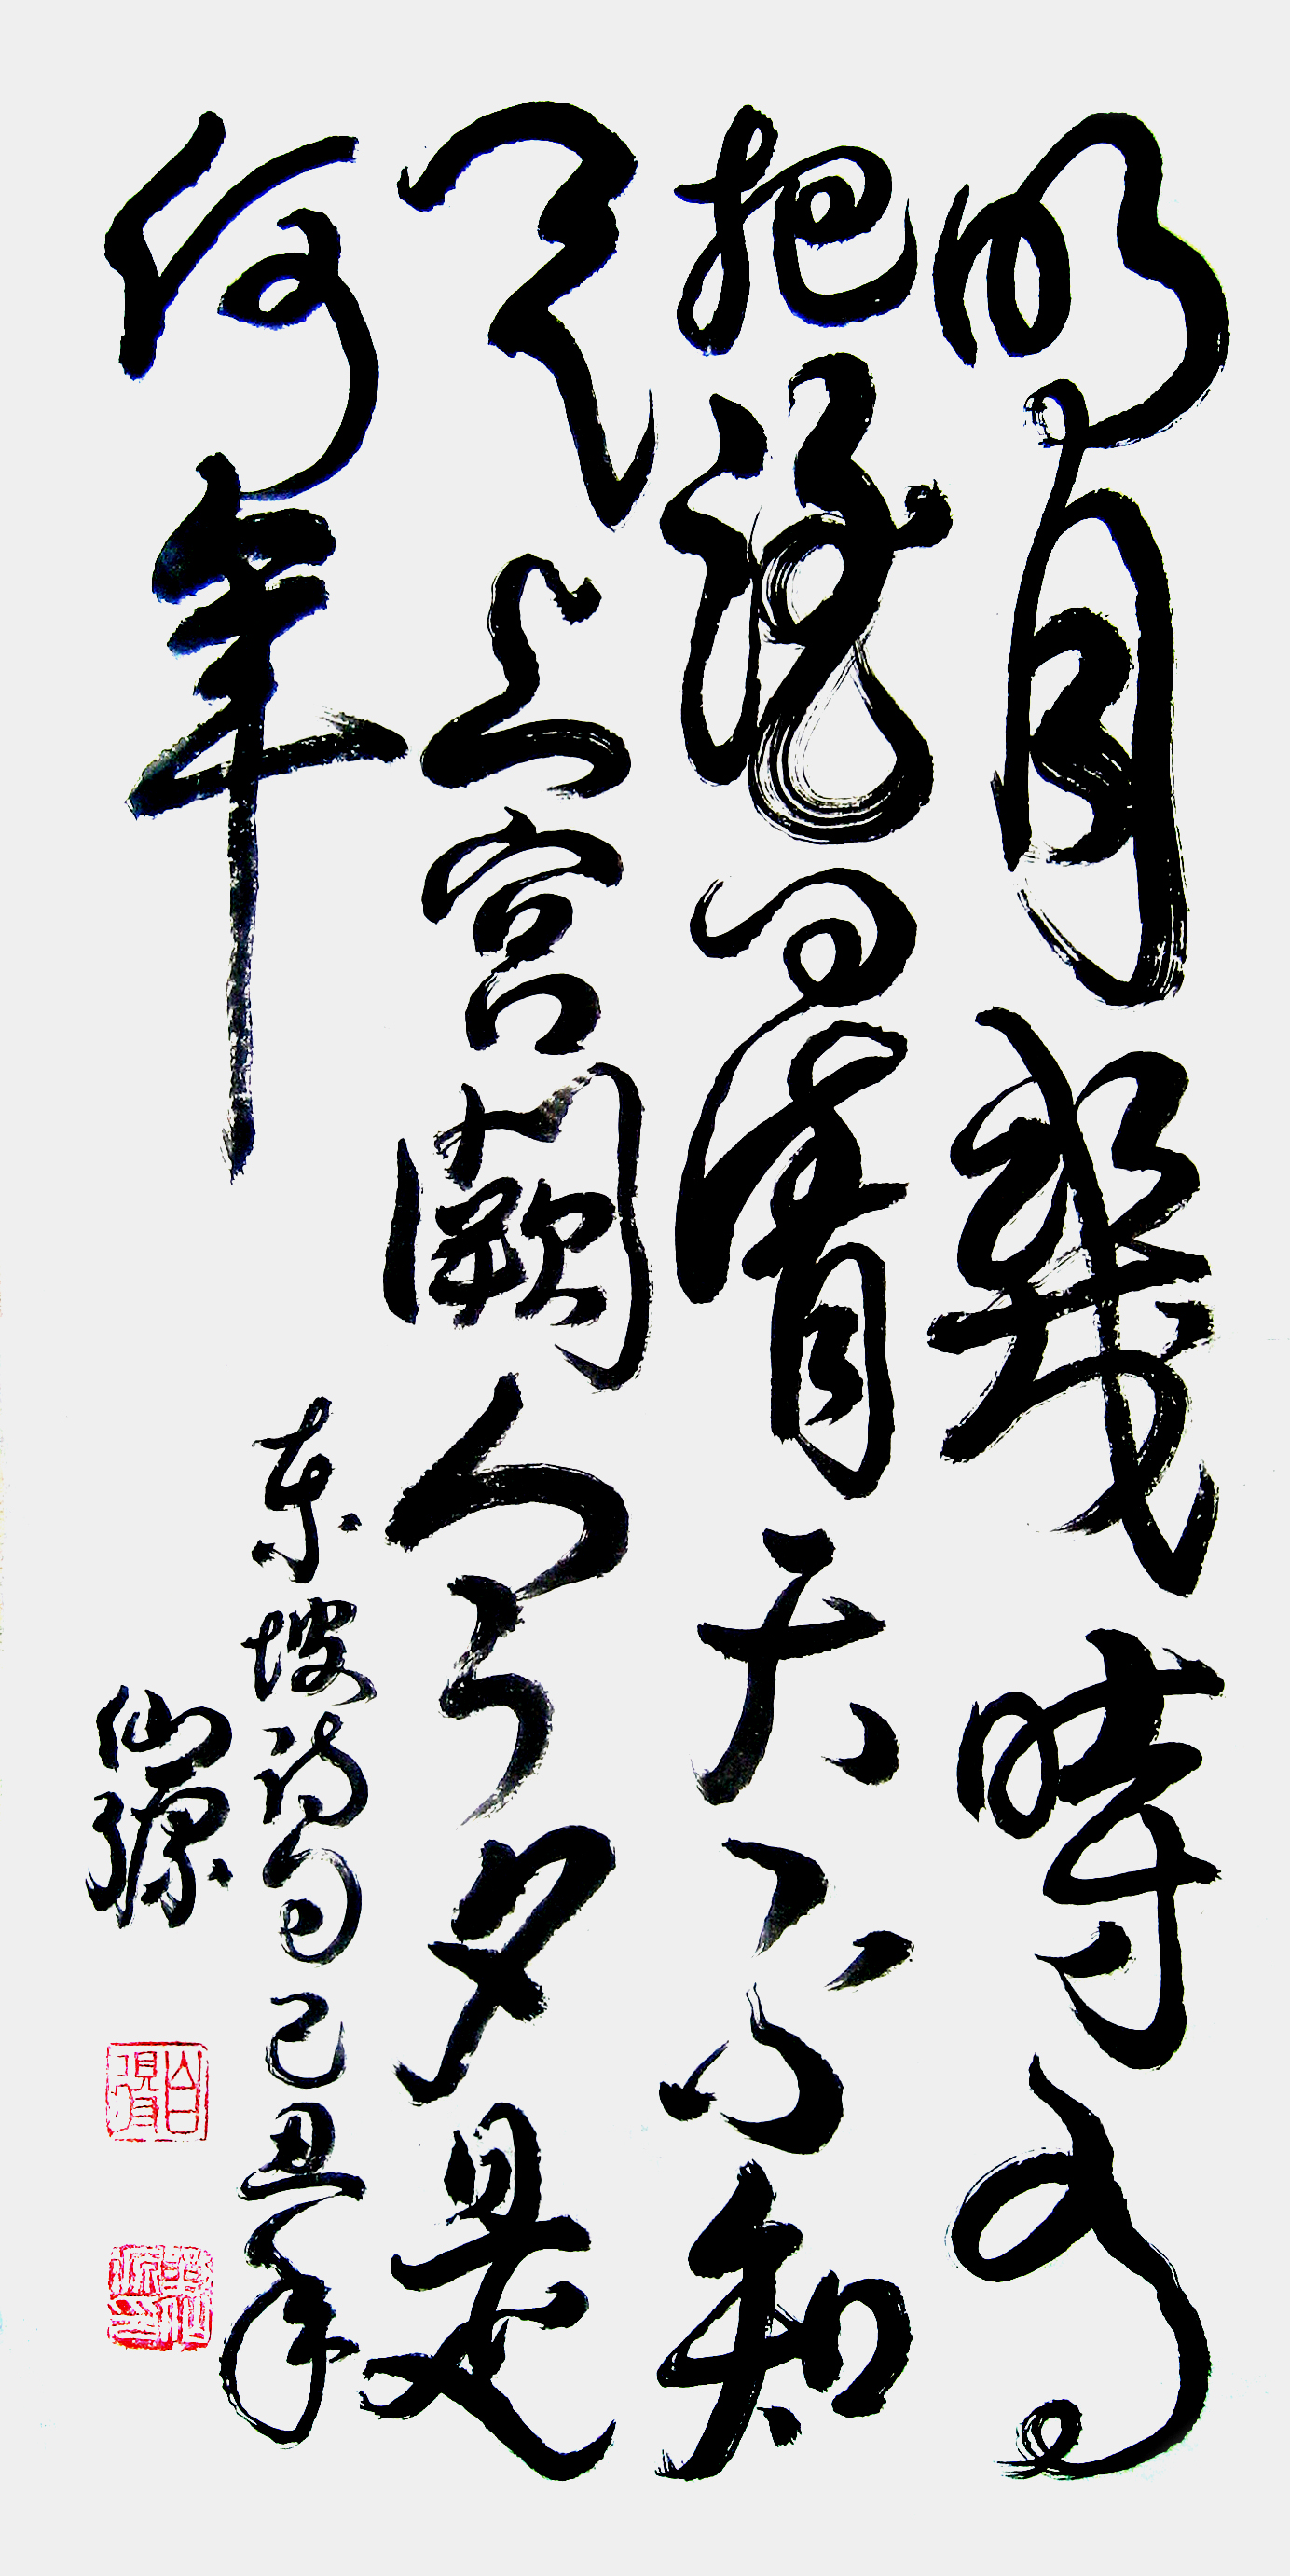 明月幾時有
把酒问青天不知
天上宫闕今夕是
何年
东坡诗句己丑年
仙源